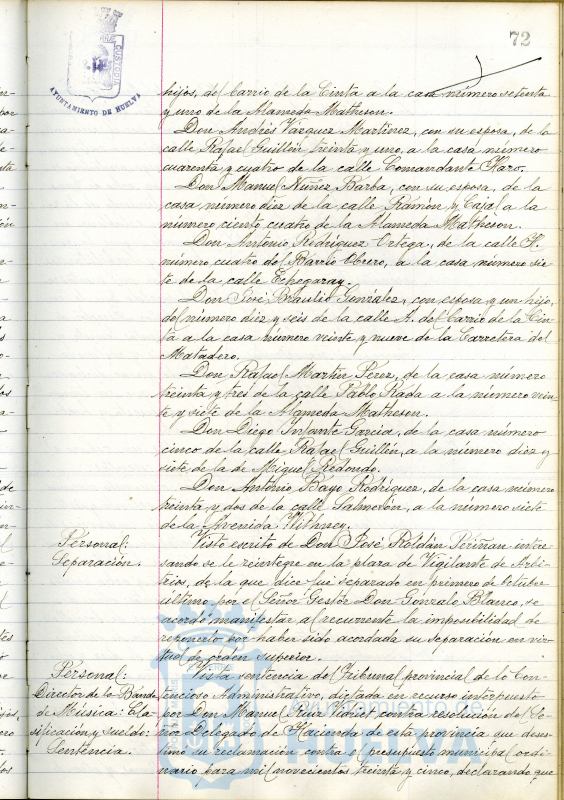 72
CUSTODIA
AYUNTAMIENTO DE HUELVA
hijos, del Barrio de la Cinta a la casa número setenta
y uno de la Alameda Matheson.
Don Andrés Vázquez Martínez, con su esposa, de la
calle Rafael Guillén treinta y uno, a la casa número
cuarenta y cuatro de la calle Comandante Haro.
Don Manuel Núñez Barba, con su esposa, de la
casa número diez de la calle Ramón y Cajal a la
número ciento cuatro de la Alameda Matheson.
Don Antonio Rodríguez Ortega, de la calle H.
número cuatro del Barrio Obrero, a la casa número sie-
te de la calle Echegaray.
Don José Braulio González, con esposa y un hijo,
del número diez y seis de la calle A. del Barrio de la Cin-
ta a la casa número veinte y nueve de la Carretera del
Matadero.
Don Rafael Martín Pérez, de la casa número
treinta y tres de la calle Pablo Rada a la número vein-
te y siete de la Alameda Matheson.
Don Diego Infante García, de la casa número
cinco de la calle Rafael Guillén, a la número diez y
siete de la de Miguel Redondo.
Don Antonio Bayo Rodríguez, de la casa número
treinta y dos de la calle Salmerón, a la número siete
de la Avenida Withney.
Personal:
Separación.
Visto escrito de Don José Roldán Periñan intere-
sando se le reintegre en la plaza de Vigilante de Arbi-
trios, de la que dice fué separado en primero de Octubre
último por el Señor Gestor Don Gonzalo Blanco, se
acordó manifestar al recurrente la imposibilidad de
reponerlo por haber sido acordada su separación en vir-
tud de orden superior.
Personal:
Director de la Banda
de Música: Cla-
sificación y sueldo:
Sentencia.
Vista sentencia del Tribunal provincial de lo Con-
tencioso Administrativo, dictada en recurso interpuesto
por Don Manuel Ruiz contra resolución del Se-
ñor Delegado de Hacienda de esta provincia que deses-
timó su reclamación contra el presupuesto municipal ordi-
nario para mil novecientos treinta y cinco, declarando que
Ayuntamiento de
HUELVA